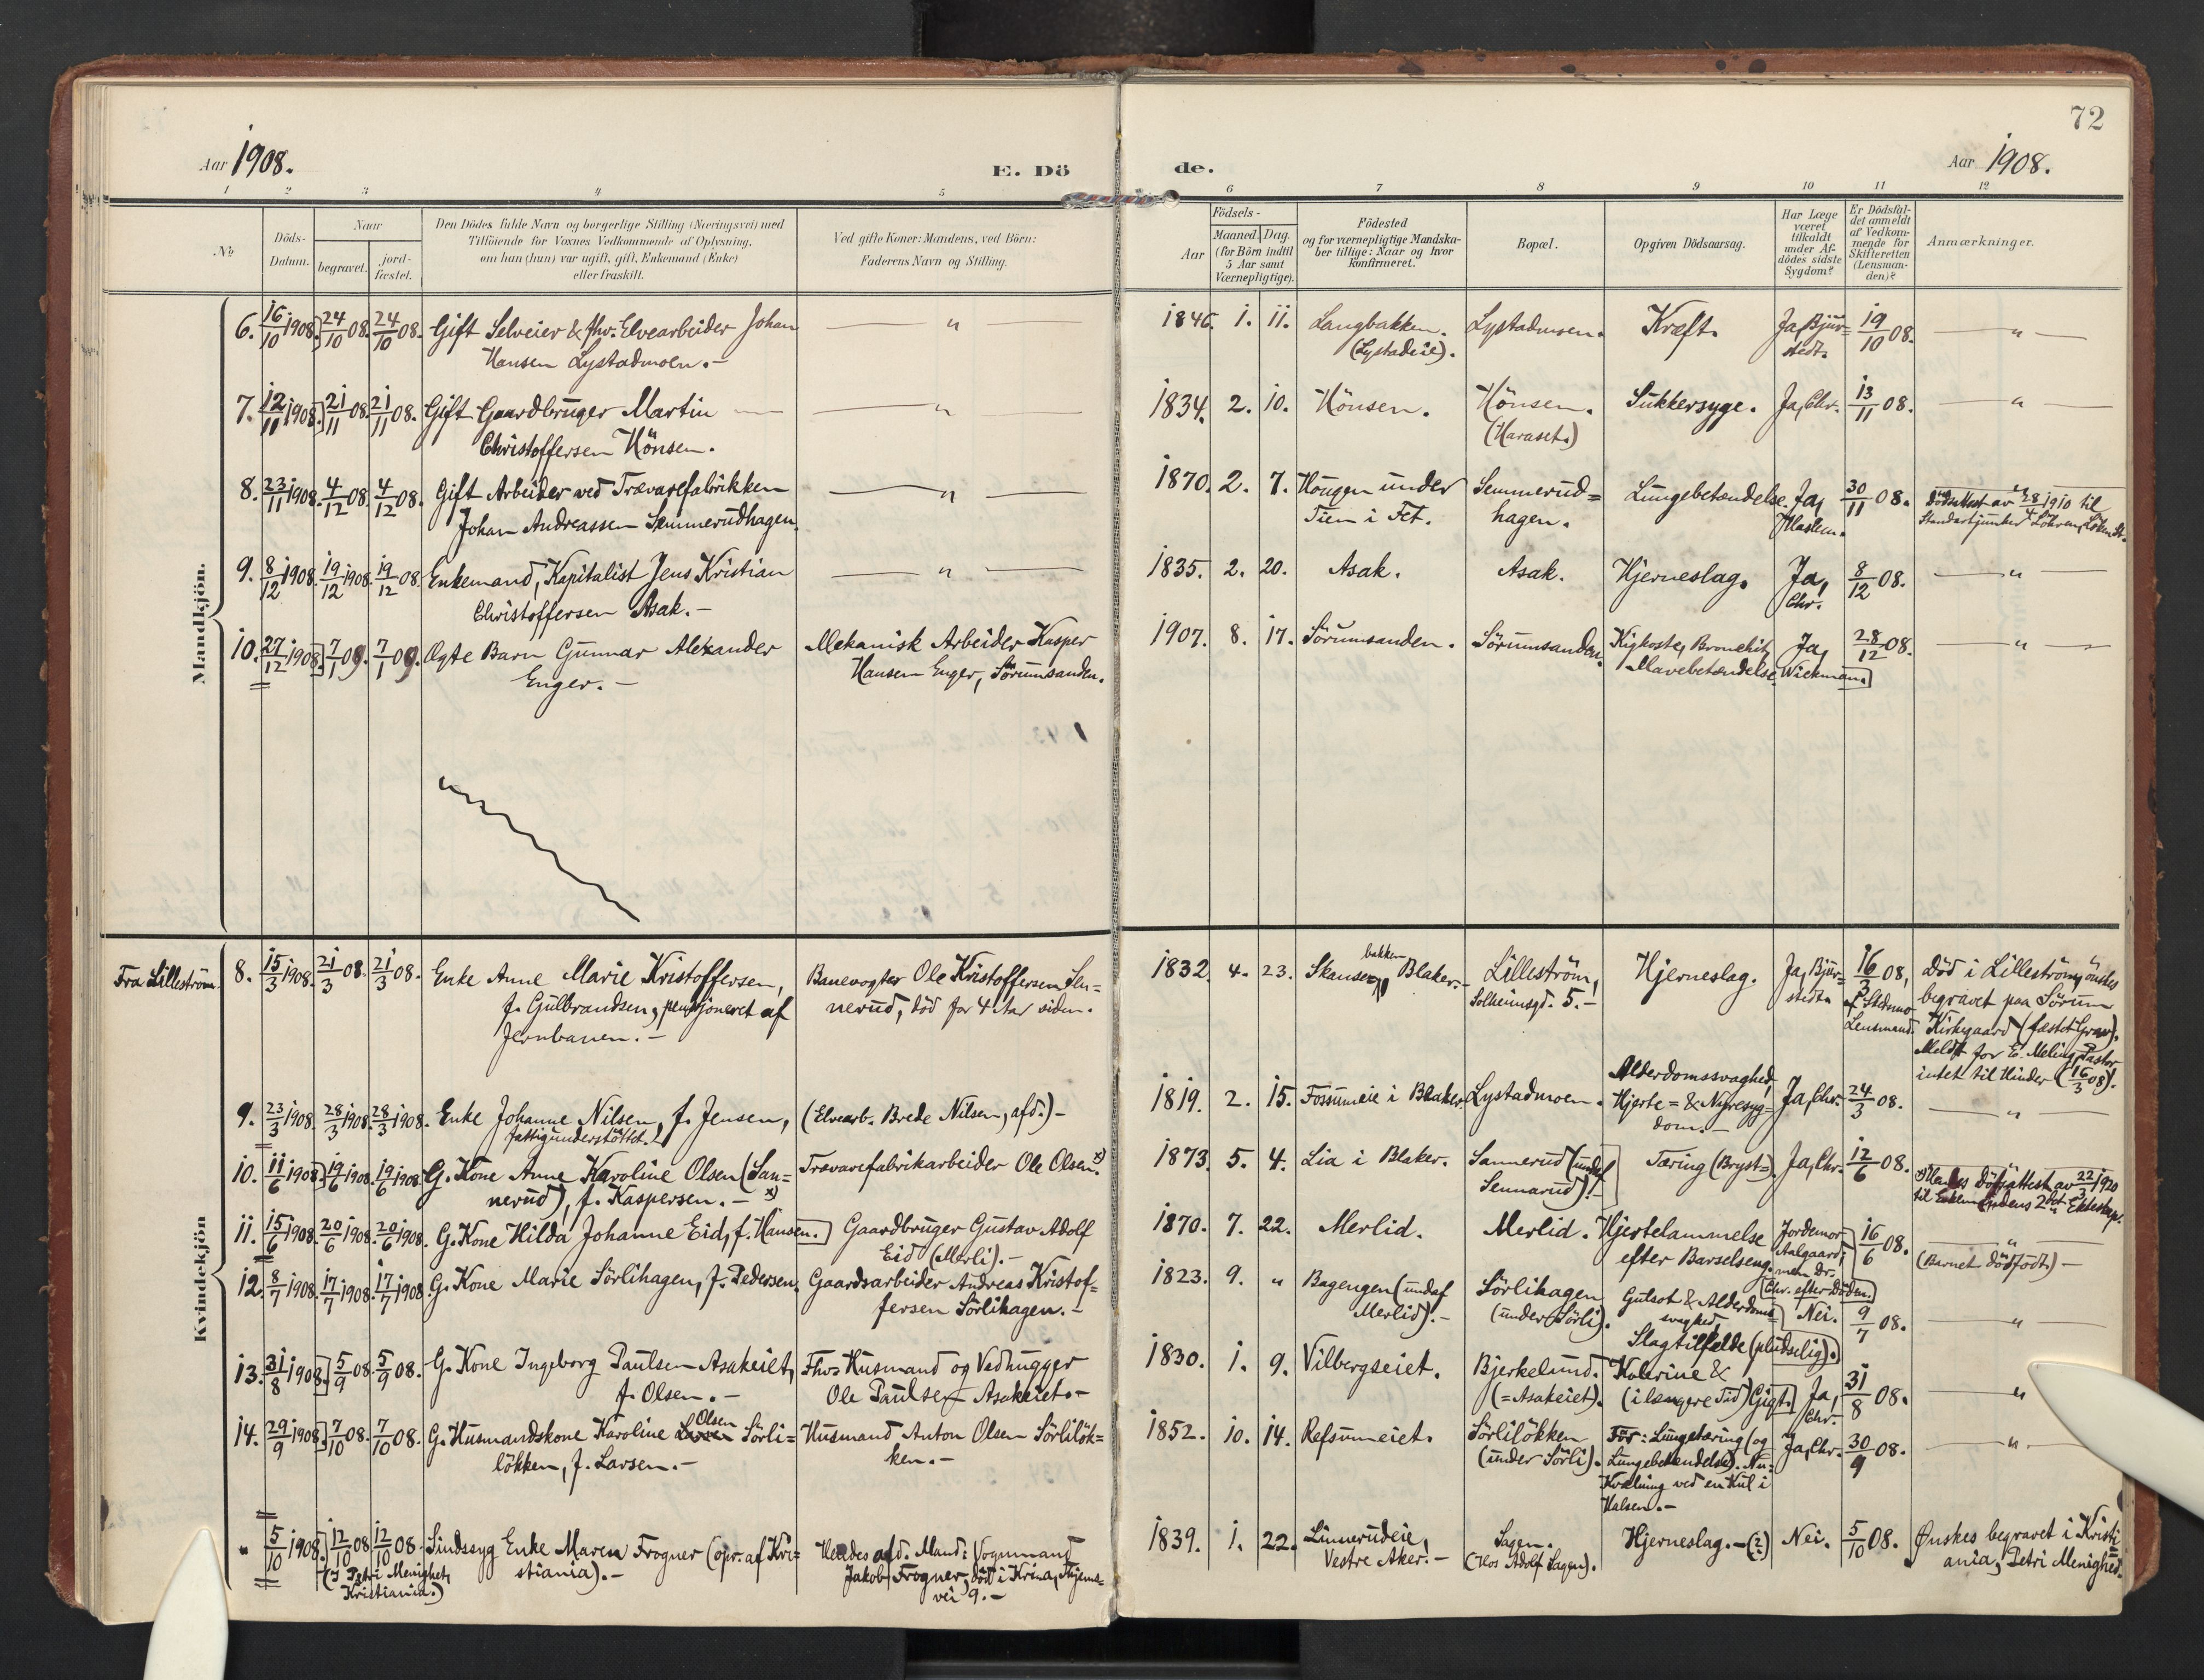 72
Aar 1908.
E. Dö
de.
Aar 1908.
1 2 3 4 5 6 7 8 9 10 11 12
No
Döds-
Datum.
Naar
begravet.
jord-
fæstet.
Den Dödes fulde Navn og borgerlige Stilling (Næringsvei) med
Tilföiende for Voxnes Vedkommende af Oplysning,
om han (hun) var ugift, gift, Enkemand (Enke)
eller fraskilt.
Ved gifte Koner: Mandens, ved Börn:
Faderens Navn og Stilling.
Födsels-
Aar
Maaned. Dag.
(for Börn indtil
5 Aar samt
Værnepligtige).
Födested
og for værnepligtige Mandska-
ber tillige: Naar og hvor
konfirmeret.
Bopæl.
Opgiven Dödsaarsag.
Har Læge
været
tilkaldt
under Af-
dödes sidste
Sygdom?
Er Dödsfal-
det anmeldt
af Vedkom-
mende for
Skifteretten
(Lensman-
den)?
Anmærkninger.
Mandkjön.
6. 16/10 1908. 24/10 08. 24/10 08. Gift Selveier & fhv. Elvearbeider Johan
Hansen Lystadmoen.-
— " —
1846. 1. 11. Langbakken.
(Lystadeie).
Lystadmoen.
Kræft.
Ja, Bjür=
stedt.
19/10 08.
— " —
7. 12/11 1908. 21/11 08. 21/11 08. Gift Gaardbruger Martin
Christoffersen Hönsen.
— " —
1834. 2. 10. Hönsen.
Hönsen.
(Haraset.)
Sukkersyge.
Ja, Chr.
13/11 08.
— " —
8. 23/11 1908. 4/12 08. 4/12 08. Gift Arbeider ved Trævarefabrikken
Johan Andreassen Semmerudhagen.
— " —
1870. 2. 7. Hougen under
Tien i Fet.
Semmerud=
hagen.
Lungebetændelse.
Ja,
Haslem.
30/11 08.
Dödsattest av 28/4 1910 til
9. 8/12 1908. 19/12 1908. 19/12 08. Enkemand, Kapitalist Jens Kristian
Christoffersen Asak.-
— " —
1835. 2. 20. Asak.
Asak.
Hjerneslag.
Ja,
Chr.
8/12 08.
— " —
10. 27/12 1908. 7/1 09. 7/1 09. Ægte Barn Gunnar Alexander
Enger.-
Mekanisk Arbeider Kasper
Hansen Enger, Sörumsanden.
1907. 8. 17. Sörumsanden.
Sörumsanden.
Kighoste, Bronchit,
Mavebetændelse.
Ja,
Wickman.
28/12 08.
— " —
Kvindekjön
Fra Lilleström.
8. 15/3 1908. 21/3 08. 21/3 08. Enke Anne Marie Kristoffersen,
f. Gulbrandsen, pensjoneret af
Jernbanen.-
Banevogter Ole Kristoffersen Sen=
nerud, död for 4 Aar siden.
1832. 4. 23. Skansebakken, Blaker.-
Lilleström,
Solheimsgd. 5.-
Hjerneslag.
Ja, Bjür=
stedt.
16/3 08,
af Stedmo
Lensmand.
Död i Lilleström, önskes
begravet paa Sörum
Kirkegaard (fæstet Grav).
Meldt for E. Meling, Pastor
intet til Hinder (16/3 08).
9. 23/3 1908. 28/3 1908. 28/3 1908. Enke Johanne Nilsen, f. Jensen,
fattigunderstöttet.
(Elvearb. Brede Nilsen, afd.)-
1819. 2. 15. Fossumeie i Blaker.
Lystadmoen.
Alderdomssvaghed,
Hjerte= & Nyresyg=
dom.-
Ja, Chr.
24/3 08.
— " —
10. 11/6 1908. 19/6 1908. 19/6 1908. G. Kone Anne Karoline Olsen (San=
nerud), f. Kaspersen.- x)
Trævarefabrikarbeider Ole Olsen. x)
1873. 5. 4. Lia i Blaker.
Sannerud (undaf
Sennarud)!-
Tæring (Bryst=).
Ja, Chr.
12/6 08.
x) Hendes Dödsattest av 22/3 1920
til Enkemandens 2det Ekteskap.
11. 15/6 1908. 20/6 1908. 20/6 1908. G. Kone Hilda Johanne Eid, f. Hansen.
Gaardbruger Gustav Adolf
Eid (Merli).-
1870. 7. 22. Merlid.
Merlid.
Hjertelammelse
efter Barselseng.
Jordemor
Aalgaard,
men Dr.
Chr. efter Döden.
16/6 08.
— " —
(Barnet dödfödt)-
12. 8/7 1908. 17/7 1908. 17/7 1908. G. Kone Marie Sörlihagen, f. Pedersen.
Gaardsarbeider Andreas Kristof=
fersen Sörlihagen.-
1823. 9. " Bagengen (undaf
Merlid).-
Sörlihagen
(under Sörli).
Gulsot & Alderdoms=
svaghed,
Nei.
9/7 08.
— " —
13. 31/8 1908. 5/9 08. 5/9 08. G. Kone Ingeborg Paulsen Asakeiet,
f. Olsen.-
Fhv. Husmand og Vedhugger
Ole Paulsen Asakeiet.-
1830. 1. 9. Vilbergseiet.
Bjerkelund.
(=Asakeiet).
Slagtilfælde (pludselig).
Kolerine &
(i længere Tid) Gigt.
Ja,
Chr.
31/8 08.
— " —
14. 29/9 1908. 7/10 08. 7/10 08. G. Husmandskone Karoline Olsen Sörli=
lökken, f. Larsen.-
Husmand Anton Olsen Sörlilök=
ken.-
1852. 10. 14. Refsumeiet.
Sörlilökken
(under Sörli).
För: Lungetæring (og
Lungebetændelse). Nu:
Kvælning ved en Kul i
Halsen.-
Ja, Chr.
30/9 08.
— " —
" 5/10 1908. 12/10 08. 12/10 08. Sindssyg Enke Maren Frogner (opr. af Kri=
stiania).-
(I Petri Menighet,
Kristiania.)
Hendes afd. Mand: Vognmand
Jakob Frogner, död i Kr.ia,
vei 9.-
1839. 1. 22. Linnerudeie,
Vestre Aker.-
Sagen.
(Hos Adolf Sagen).
Hjerneslag.-(?)
Nei.
5/10 08.
Ønskes begravet i Kristi
ania, Petri Menighed.